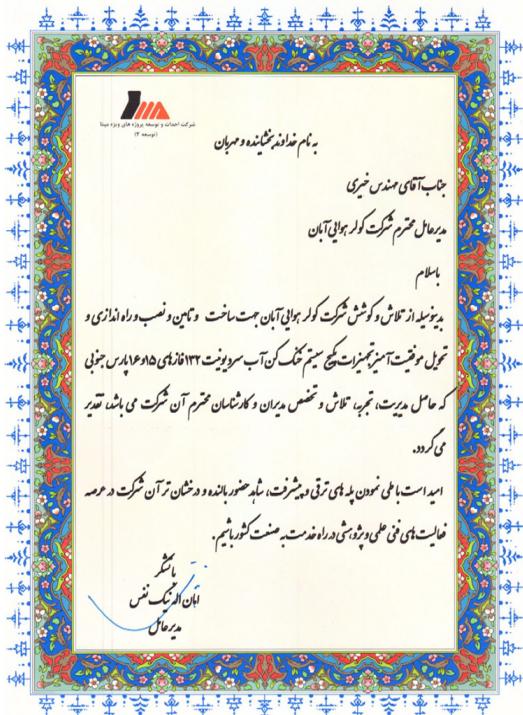 شرکت احداث و توسعه پروژه های ویژه مپنا
(توسعه ۳)
به نام خداوند بخشاینده و مهربان
جناب آقای مهندس خیری
مدیرعامل محترم شرکت کولر هوایی آبان
باسلام
بدینوسیله از تلاش و کوشش شرکت کولر هوایی آبان جهت ساخت و تامین و نصب و راه اندازی و
تحویل موفقیت آمیز تجهیزات پکیج سیستم خنک کن آب سرد یونیت ۱۳۲ فازهای ۱۵و۱۶ پارس جنوبی
که حاصل مدیریت، تجربه، تلاش و تخصص مدیران و کارشناسان محترم آن شرکت می باشد، تقدیر
می گردد.
امید است با طی نمودن پله های ترقی و پیشرفت، شاهد حضور بالنده و درخشان تر آن شرکت در عرصه
فعالیت های فنی علمی و پژوهشی در راه خدمت به صنعت کشور باشیم.
باتشکر
امان اله نیک نفس
مدیرعامل